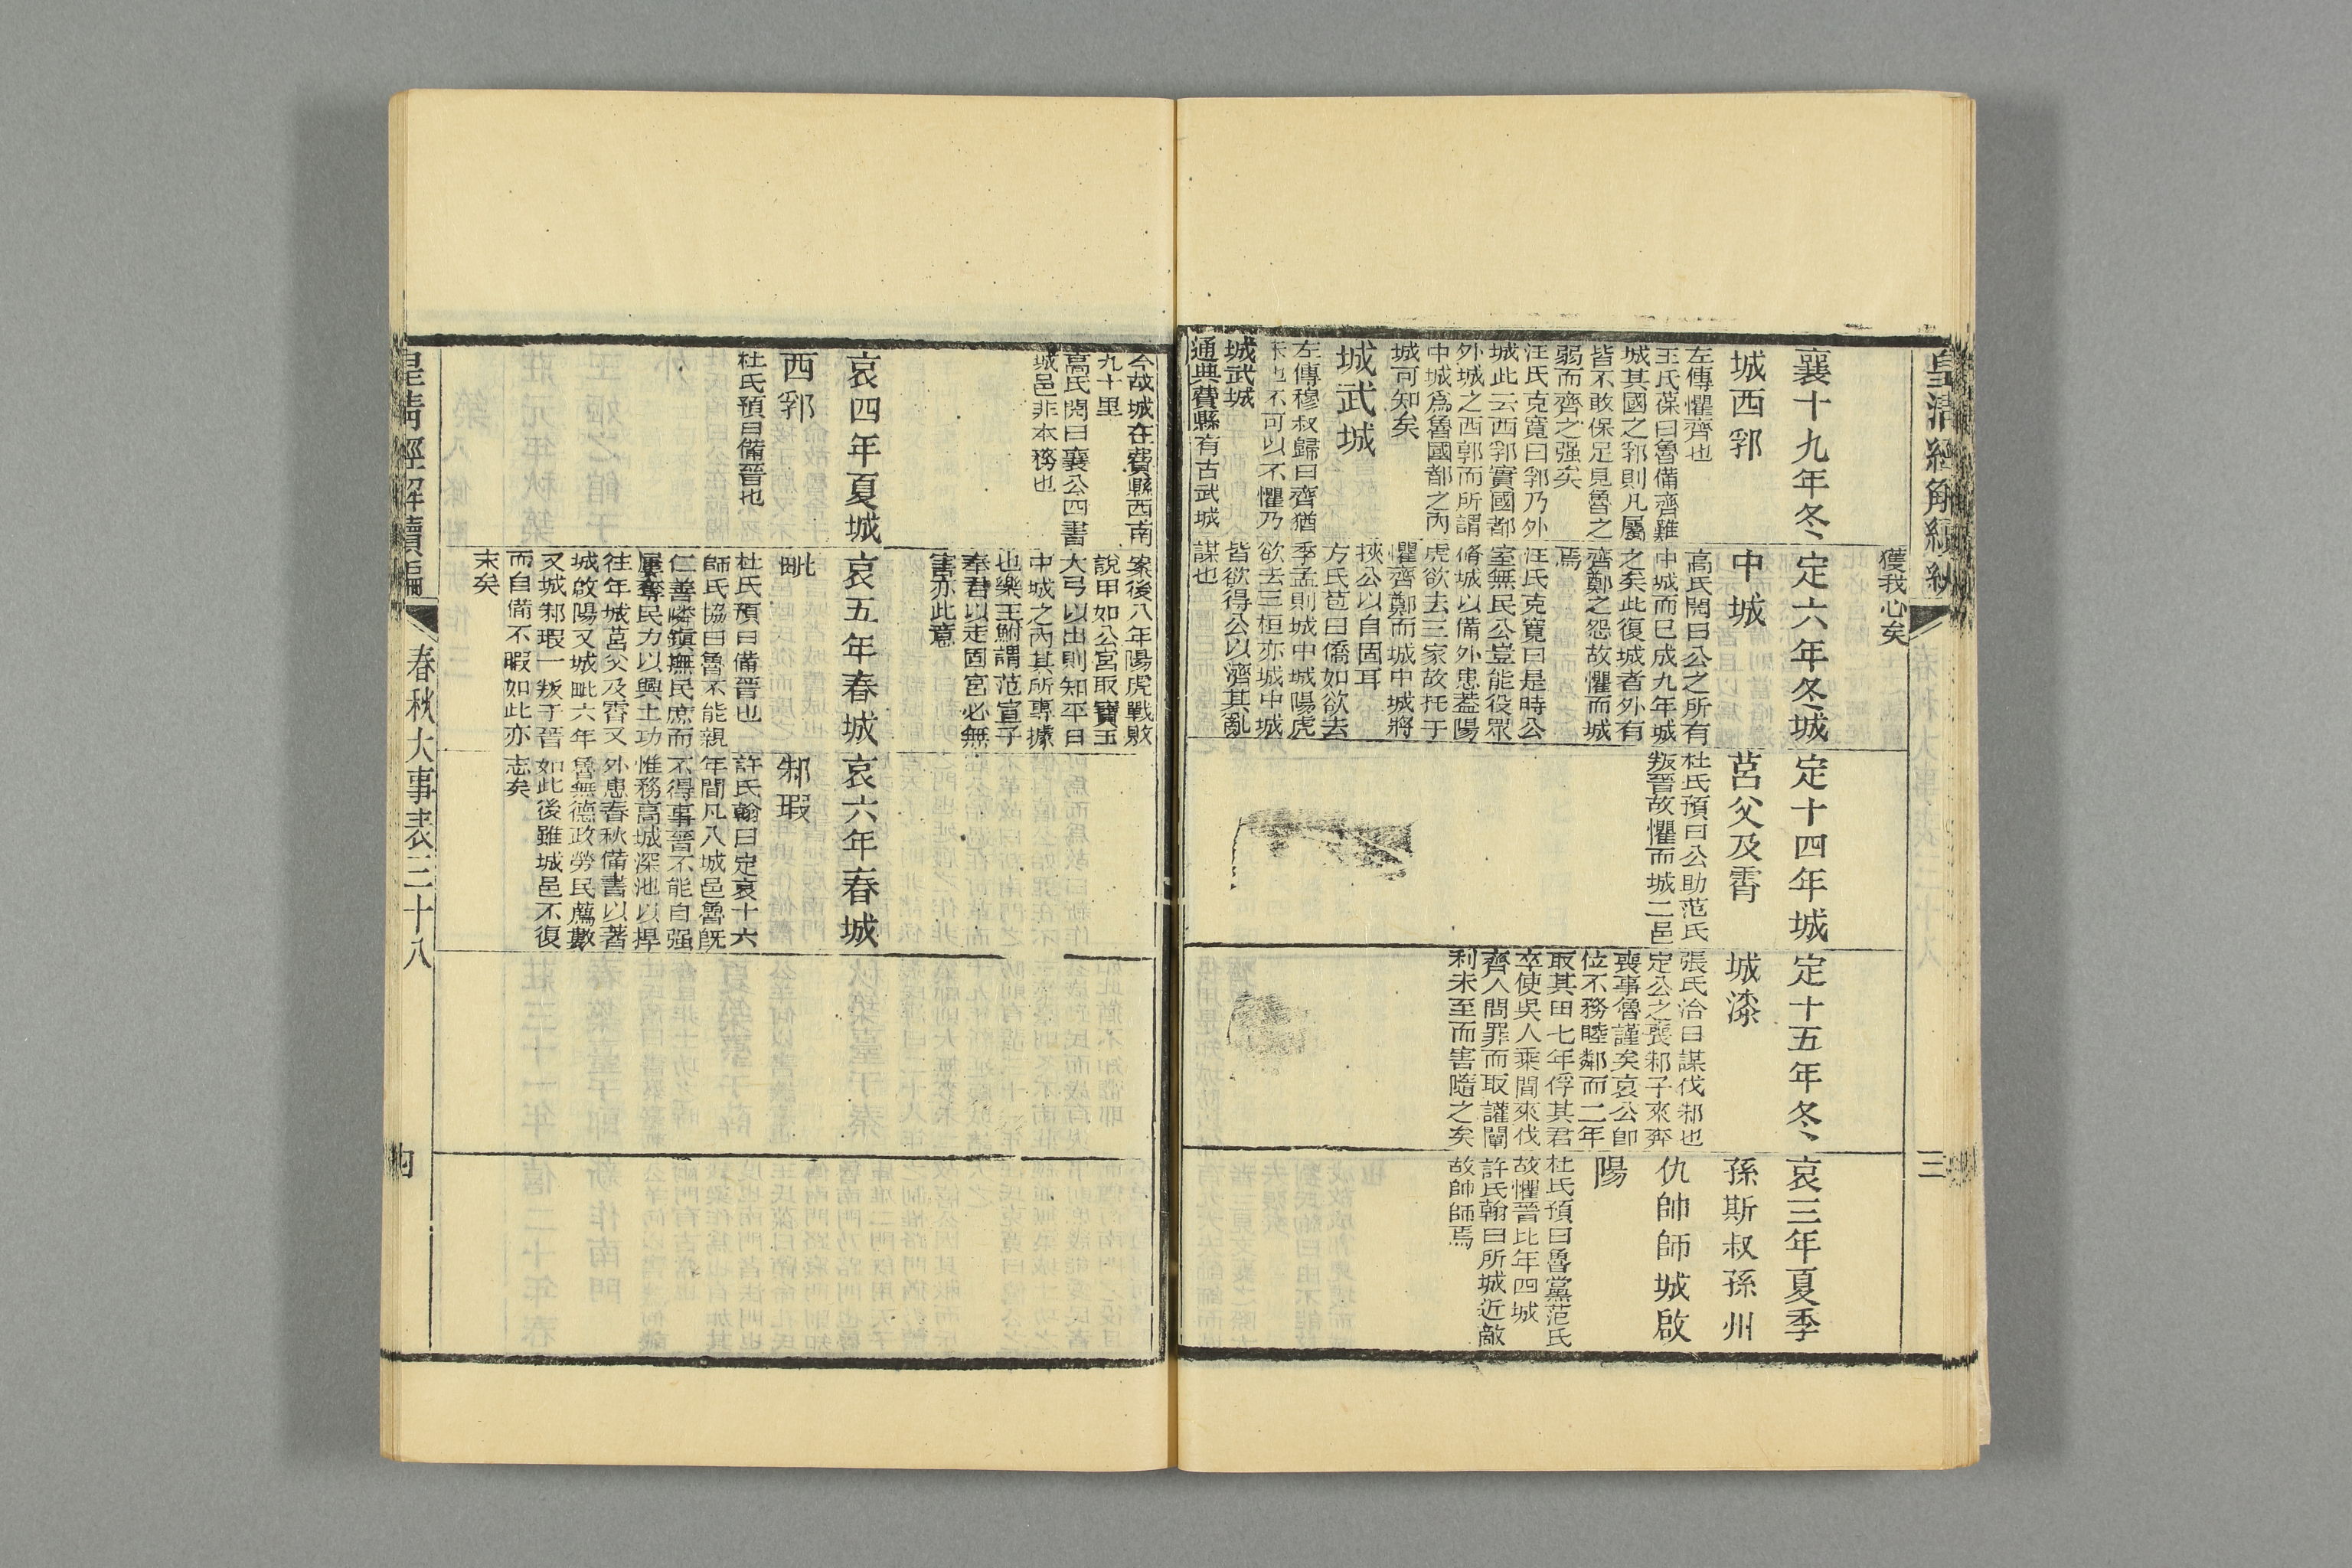 皇清經解續編
獲我心矣
襄十九年冬
城西郛
左傳懼齊也
王氏葆曰魯備齊難
城其國之郛則凡屬
皆不敢保足見魯之
弱而齊之强矣
汪氏克寬曰郛乃外
城此云西郛實國都
外城之西郭而所謂
中城爲魯國都之內
城可知矣
城武城
左傳穆叔歸曰齊猶
未也不可以不懼乃
城武城
通典費縣有古武城
定六年冬城
中城
高氏閌曰公之所有
中城而已成九年城
之矣此復城者外有
齊鄭之怨故懼而城
焉
汪氏克寬曰是時公
室無民公豈能役眾
脩城以備外患蓋陽
虎欲去三家故托于
懼齊鄭而城中城將
挾公以自固耳
方氏苞曰僑如欲去
季孟則城中城陽虎
欲去三桓亦城中城
皆欲得公以濟其亂
謀也
定十四年城
莒父及霄
杜氏預曰公助范氏
叛晉故懼而城二邑
定十五年冬
城漆
張氏洽曰謀伐邾也
定公之喪邾子來奔
喪事魯謹矣哀公卽
位不務睦鄰而二年
取其田七年俘其君
卒使吳人乘間來伐
齊人問罪而取讙闡
利未至而害隨之矣
哀三年夏季
孫斯叔孫州
仇帥師城啟
陽
杜氏預曰魯黨范氏
故懼晉比年四城
許氏翰曰所城近敵
故帥師焉
三
今故城在費縣西南
九十里
高氏閌曰襄公四書
城邑非本務也
家後八年陽虎戰敗
說甲如公宮取寶玉
大弓以出則知平日
中城之內其所專據
也樂王鮒謂范宣子
奉君以走固宮必無
害亦此意
哀四年夏城
西郛
杜氏預曰備晉也
哀五年春城
毗
杜氏預曰備晉也
師氏協曰魯不能親
仁善鄰鎮撫民庶而
屢奪民力以興土功
往年城莒父及霄又
城啟陽又城毗六年
又城邾瑕一叛于晉
而自備不暇如此亦
末矣
哀六年春城
邾瑕
許氏翰曰定哀十六
年間凡八城邑魯旣
不得事晉不能自强
惟務高城深池以捍
外患春秋備書以著
魯無德政勞民薦數
如此後雖城邑不復
志矣
皇清經解續編
春秋大事表三十八
四